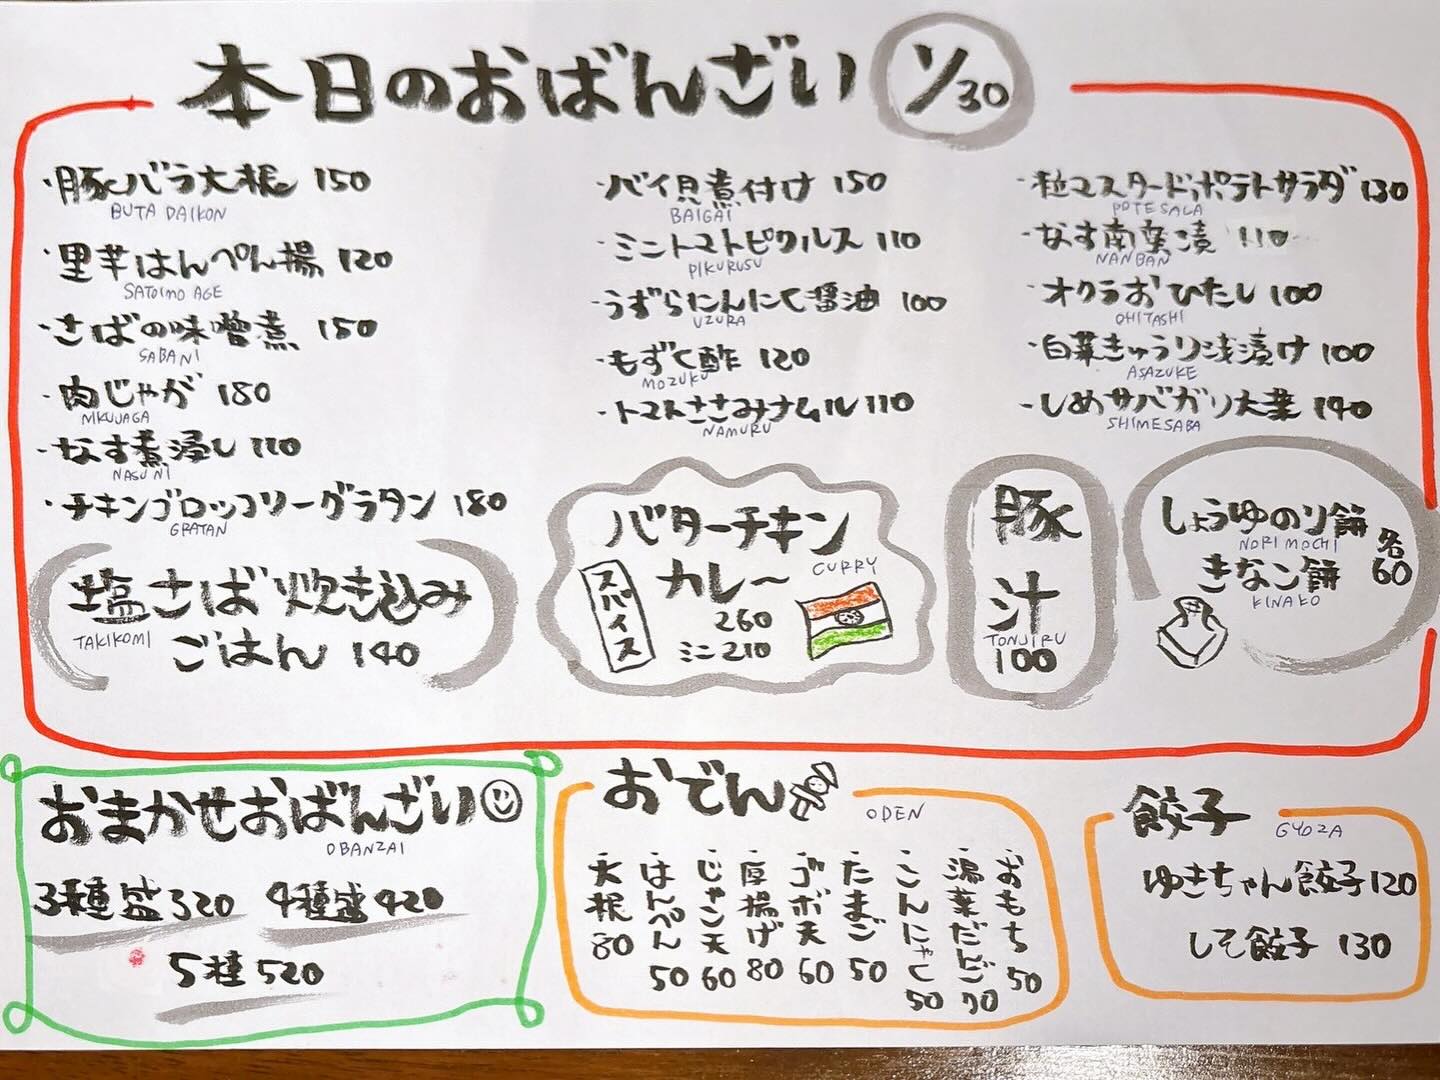 本日のおばんざい 1/30
・豚バラ大根 150
BUTA DAIKON
・里芋はんぺん揚 120
SATOIMO AGE
・さばの味噌煮 150
SABANI
・肉じゃが 180
NIKUJAGA
・なす煮浸し 110
NASUNI
・チキンブロッコリーグラタン 180
GRATAN
・バイ貝煮付け 150
BAIGAI
・ミニトマトピクルス 110
PIKURUSU
・うずらにんにく醤油 100
UZURA
・もずく酢 120
MOZUKU
・トマトささみナムル 110
NAMURU
・粒マスタードポテトサラダ 130
POTESALA
・なす南蛮漬 110
NANBAN
・オクラおひたし 100
OHITASHI
・白菜きゅうり浅漬け 100
ASAZUKE
・しめサバガリ大葉 140
SHIMESABA
塩さば炊き込み
TAKIKOMI
ごはん 140
バターチキン
カレー
CURRY
スパイス
260
ミニ 210
豚汁
TONJIRU
100
しょうゆのり餅
NORI MOCHI
きなこ餅
KINAKO
各60
おまかせおばんざい
OBANZAI
3種盛 320 4種盛 420
5種 520
おでん
ODEN
・大根 80
・はんぺん 50
・じゃン天 60
・厚揚げ 80
・ゴボ天 60
・たまご 50
・こんにゃく 50
・湯葉だんご 70
・おもち 50
餃子
GYOZA
ゆきちゃん餃子 120
しそ餃子 130